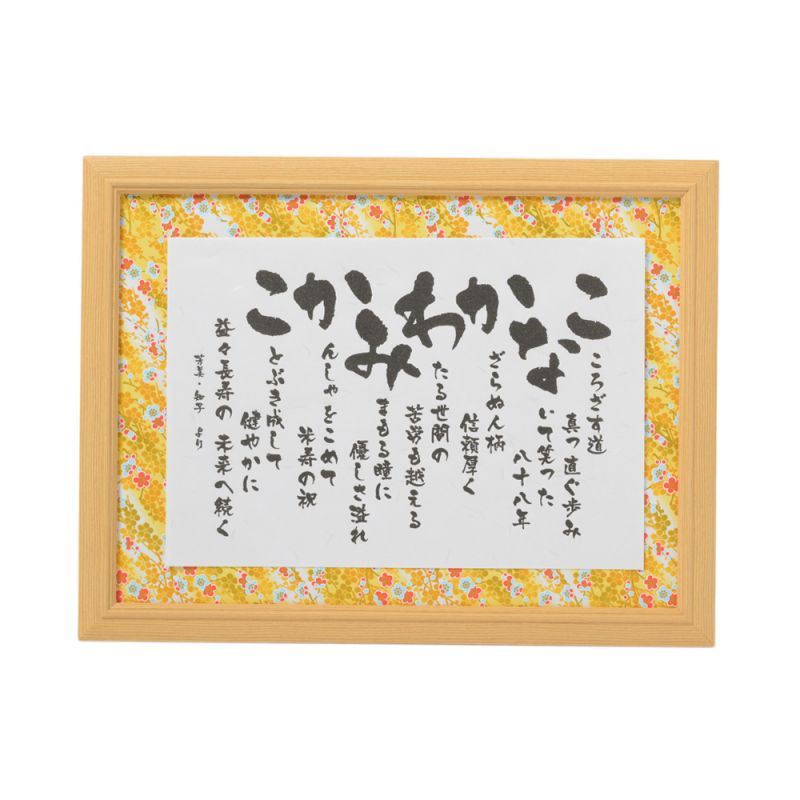 こころざす道
真っ直ぐ歩み
ないて笑った
八十八年
かざらぬ人柄
信頼厚く
わたる世間の
苦労も越える
みまもる瞳に
優しさ溢れ
かんしゃをこめて
米寿の祝
ことぶき成して
健やかに
益々長寿の 未来へ続く
芳美・ より